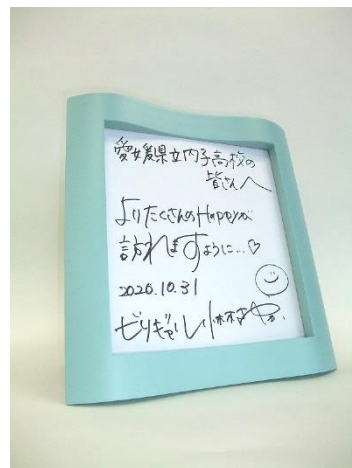 愛媛県立内子高校の
皆さんへ
よりたくさんのHappyが
訪れますように...♡
2020.10.31
ビリギャル 小林さやか.